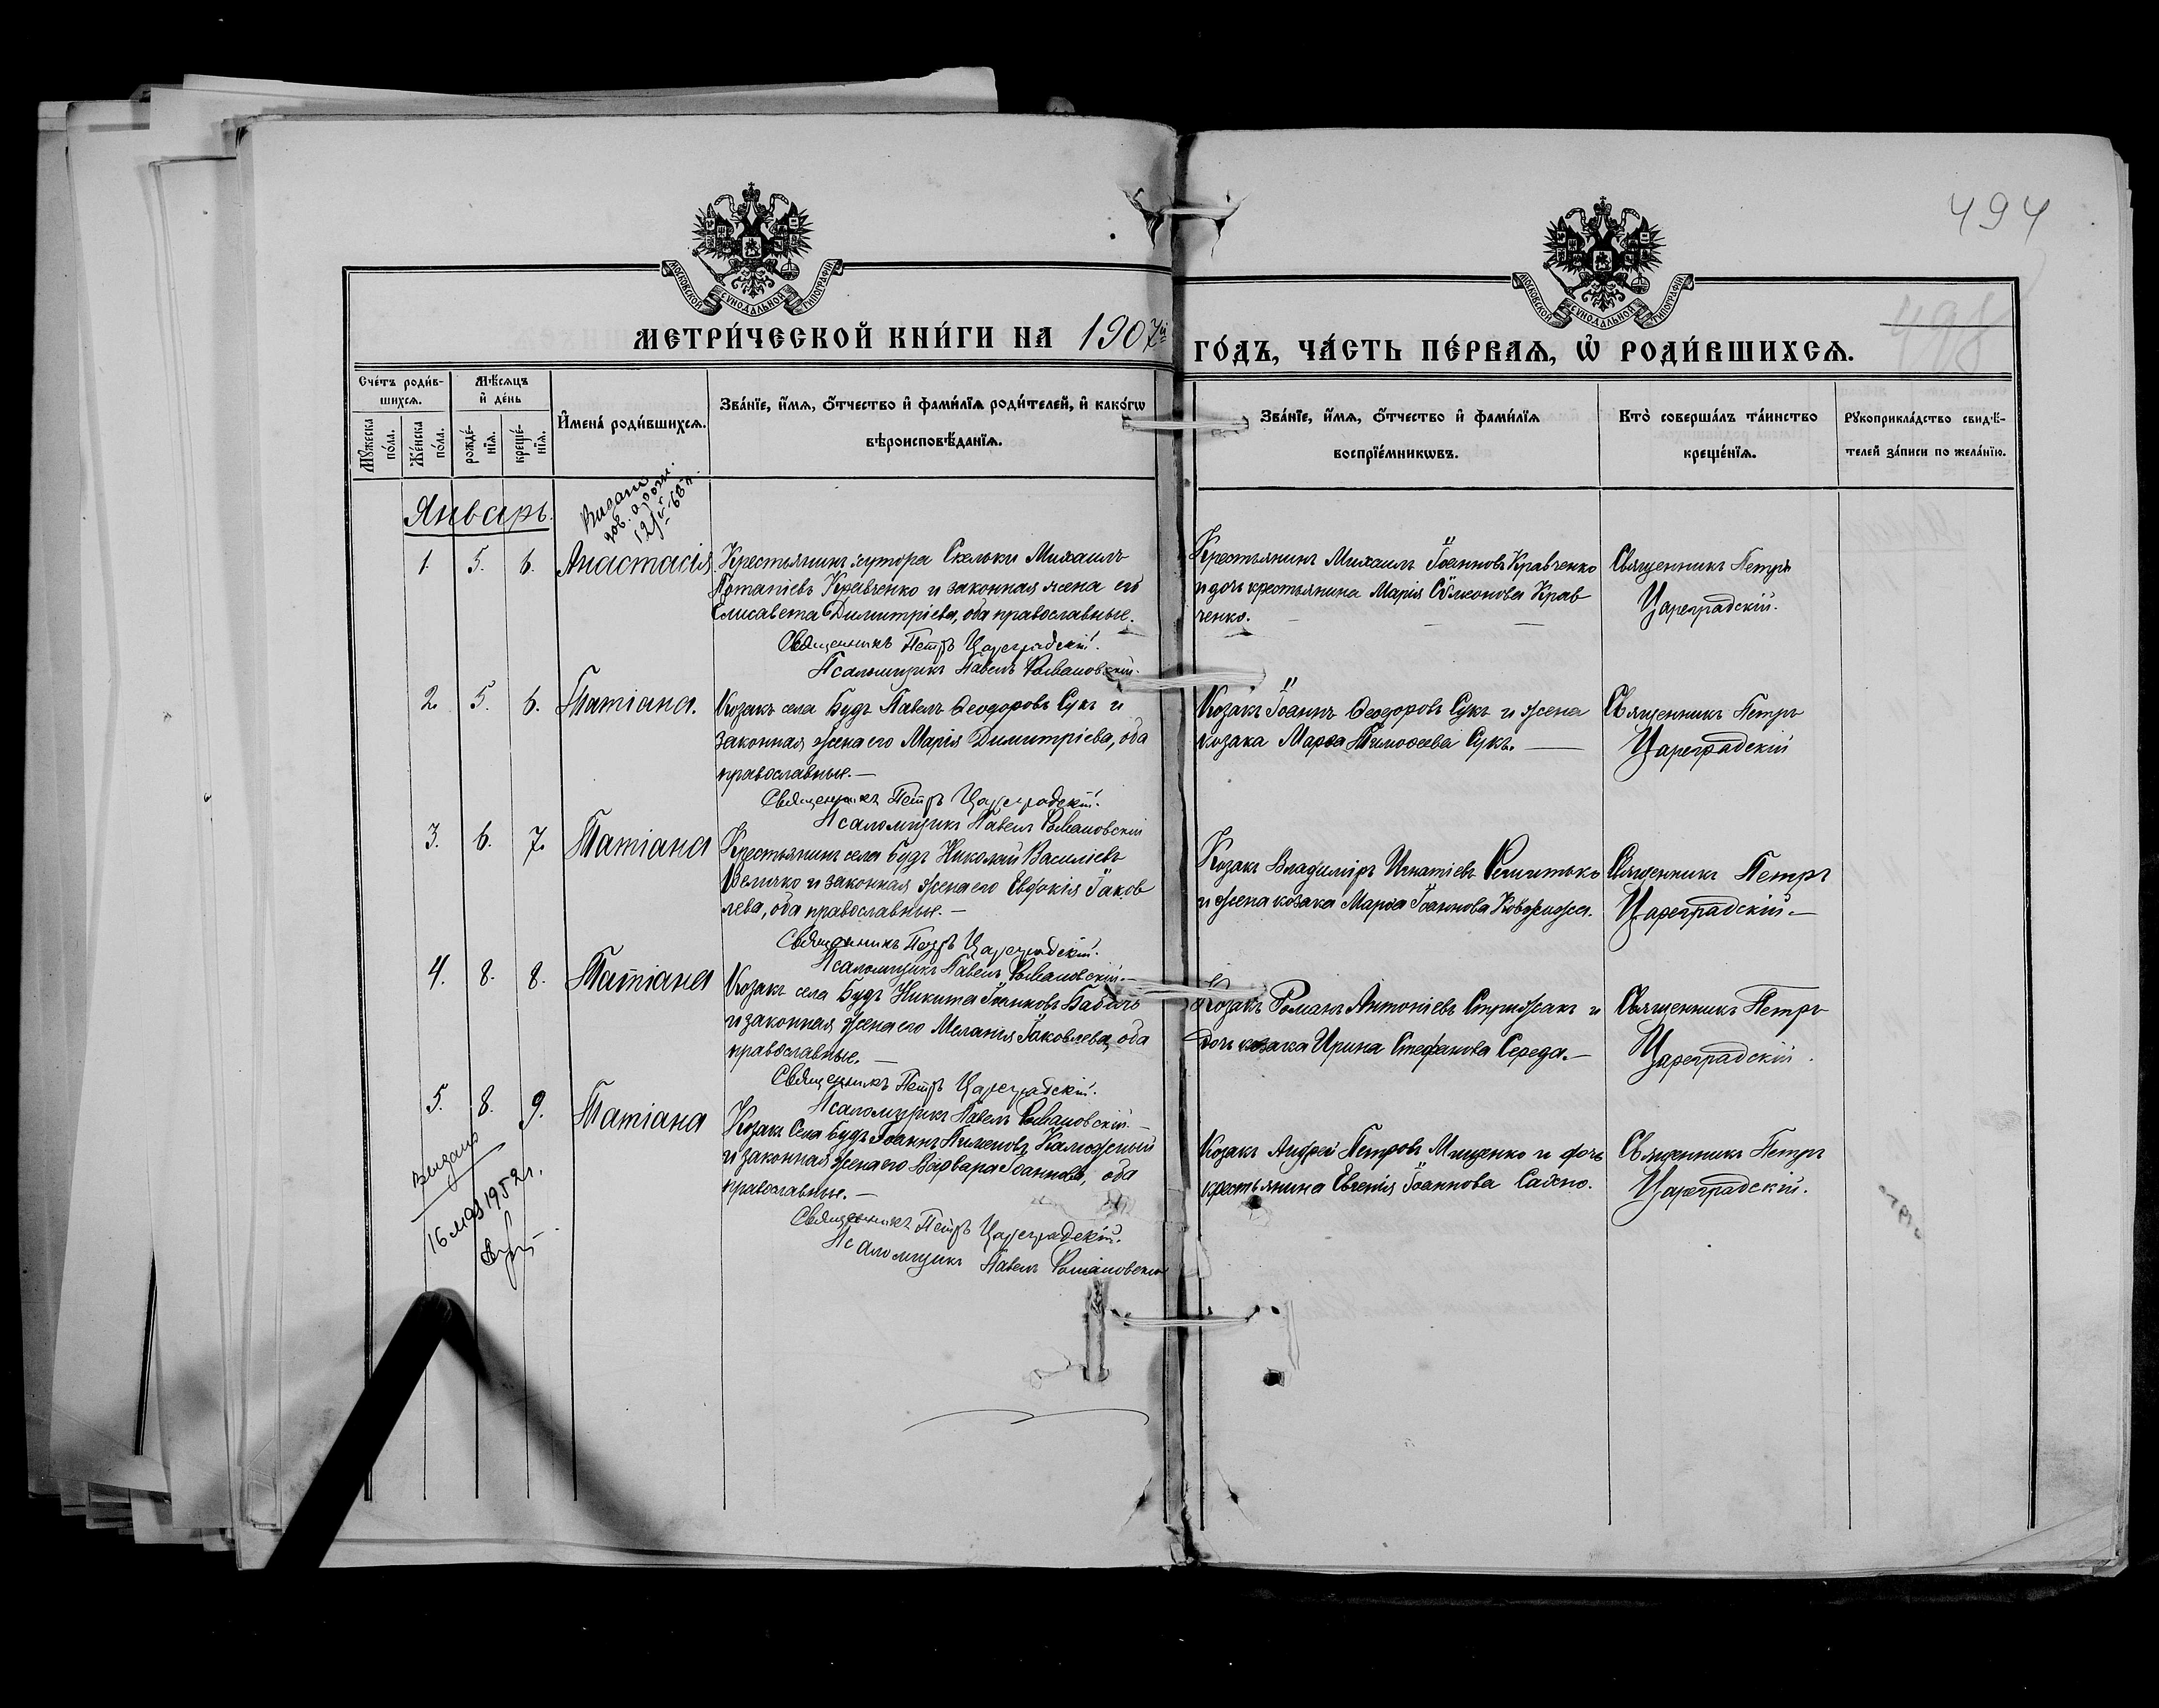 494
498
МОСКОВСКОЙ СУНОДАЛЬНОЙ ТИПОГРАФІИ
МОСКОВСКОЙ СУНОДАЛЬНОЙ ТИПОГРАФІИ
МЕТРИ́ЧЕСКОЙ КНИ́ГИ НА 1907й
ГО́ДЪ, ЧА́СТЬ ПЕ́РВАѦ, Ѡ҆ РОДИ́ВШИХСѦ.
Сче́тъ роди́в-
шихсѧ.
Мѣ́сѧцъ
и҆ де́нь
Мꙋ́жеска
по́ла.
Же́нска
по́ла.
рожде́-
нїѧ.
креще́-
нїѧ.
И҆мена̀ роди́вшихсѧ.
Зва́нїе, и҆́мѧ, ѻ҆́тчество и҆ фами́лїѧ роди́телей, и҆ како́гѡ
вѣроисповѣ́данїѧ.
Зва́нїе, и҆́мѧ, ѻ҆́тчество и҆ фами́лїѧ
воспрїе́мникѡвъ.
Кто̀ соверша́лъ та́инство
креще́нїѧ.
Рꙋкоприкла́дство свидѣ́-
телей за́писи по жела́нїю.
Январь.
1. 5. 6. Анастасія
Крестьянинъ хутора Скельки Михаилъ
Потапіевъ Кравченко и законная жена его
Елисавета Димитріева, оба православные.
Священникъ Петръ Цареградскій.
Псаломщикъ Павелъ Романовскій.
Крестьянинъ Михаилъ Іоанновъ Кравченко
и дочь крестьянина Марія Сѵмеонова Крав
ченко.
Священникъ Петръ
Цареградскій.
2. 5. 6. Татіана.
Козакъ села Будъ Павелъ Ѳеодоровъ Сукъ и
законная жена его Марія Димитріева, оба
православные. —
Священникъ Петръ Цареградскій.
Псаломщикъ Павелъ Романовскій
Козакъ Іоаннъ Ѳеодоровъ Сукъ и жена
козака Марѳа Тимоѳеева Сукъ. —
Священникъ Петръ
Цареградскій
3. 6. 7. Татіана
Крестьянинъ села Будъ Николай Василіевъ
Величко и законная жена его Евдокія Іаков
лева, оба православные. —
Священникъ Петръ Цареградскій.
Псаломщикъ Павелъ Романовскій. —
Козакъ Владиміръ Игнатіевъ
и жена козака Марѳа Іоаннова
Священникъ Петръ
Цареградскій —
4. 8. 8. Татіана
Козакъ села Будъ Никита Іоанновъ Бабичъ
и законная жена его Меланія Іаковлева, оба
православные. —
Священникъ Петръ Цареградскій.
Псаломщикъ Павелъ Романовскій. —
Козакъ Романъ Антоніевъ Стрижакъ и
дочь козака Ирина Стефанова Середа. —
Священникъ Петръ
Цареградскій.
5. 8. 9. Татіана
Козакъ села Будъ Іоаннъ Пименовъ Калюжный
и законная жена его Варвара Іоаннова, оба
православные. —
Священникъ Петръ Цареградскій.
Псаломщикъ Павелъ Романовскій
Козакъ Андрей Петровъ Мищенко и дочь
крестьянина Евгенія Іоаннова
Священникъ Петръ
Цареградскій.
16 мая 1952 г.